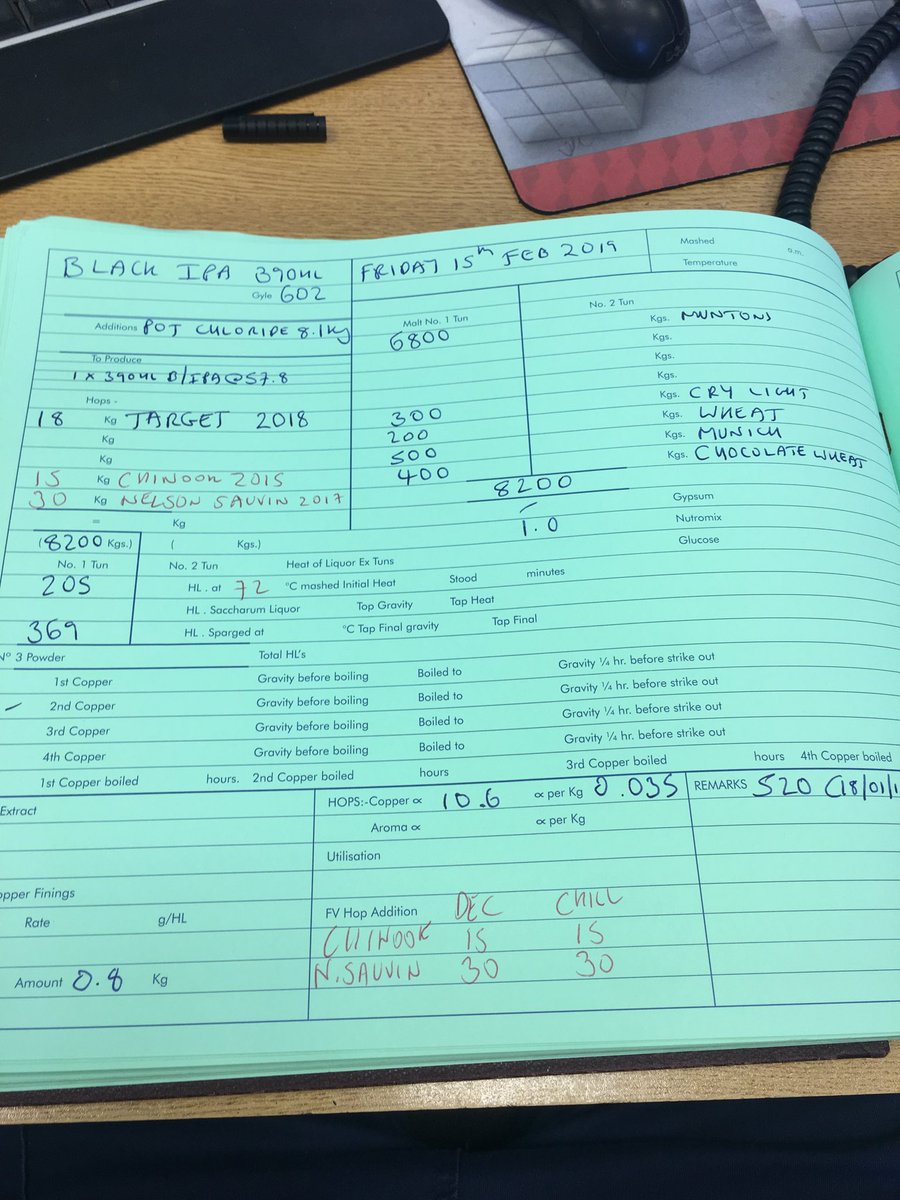 BLACK IPA 390HL FRIDAY 15th FEB 2019 Mashed a.m.
Gyle 602 Temperature
Additions POT CHLORIDE 8.1Kg Malt No. 1 Tun No. 2 Tun
6800 Kgs. MUNTONS
To Produce Kgs.
1 x 390HL B/IPA@57.8 Kgs.
Hops - Kgs.
18 Kg TARGET 2018 300 Kgs. CRY LIGHT
Kg 200 Kgs. WHEAT
Kg 500 Kgs. MUNICH
15 Kg CHINOOK 2015 400 Kgs. CHOCOLATE WHEAT
30 Kg NELSON SAUVIN 2017 8200
= Kg Gypsum
(8200 Kgs.) ( Kgs.) 1.0 Nutromix
No. 1 Tun No. 2 Tun Heat of Liquor Ex Tuns Glucose
205 HL . at 72 °C mashed Initial Heat Stood minutes
HL . Saccharum Liquor Top Gravity Tap Heat
369 HL . Sparged at °C Tap Final gravity Tap Final
Nº 3 Powder Total HL's
1st Copper Gravity before boiling Boiled to Gravity ¼ hr. before strike out
2nd Copper Gravity before boiling Boiled to Gravity ¼ hr. before strike out
3rd Copper Gravity before boiling Boiled to Gravity ¼ hr. before strike out
4th Copper Gravity before boiling Boiled to Gravity ¼ hr. before strike out
1st Copper boiled hours. 2nd Copper boiled hours 3rd Copper boiled hours 4th Copper boiled
Extract HOPS:-Copper ∝ 10.6 ∝ per Kg 0.035 REMARKS 520 (18/01/1
Aroma ∝ ∝ per Kg
Utilisation
opper Finings
Rate g/HL FV Hop Addition DEC CHILL
CHINOOK 15 15
Amount 0.8 Kg N.SAUVIN 30 30